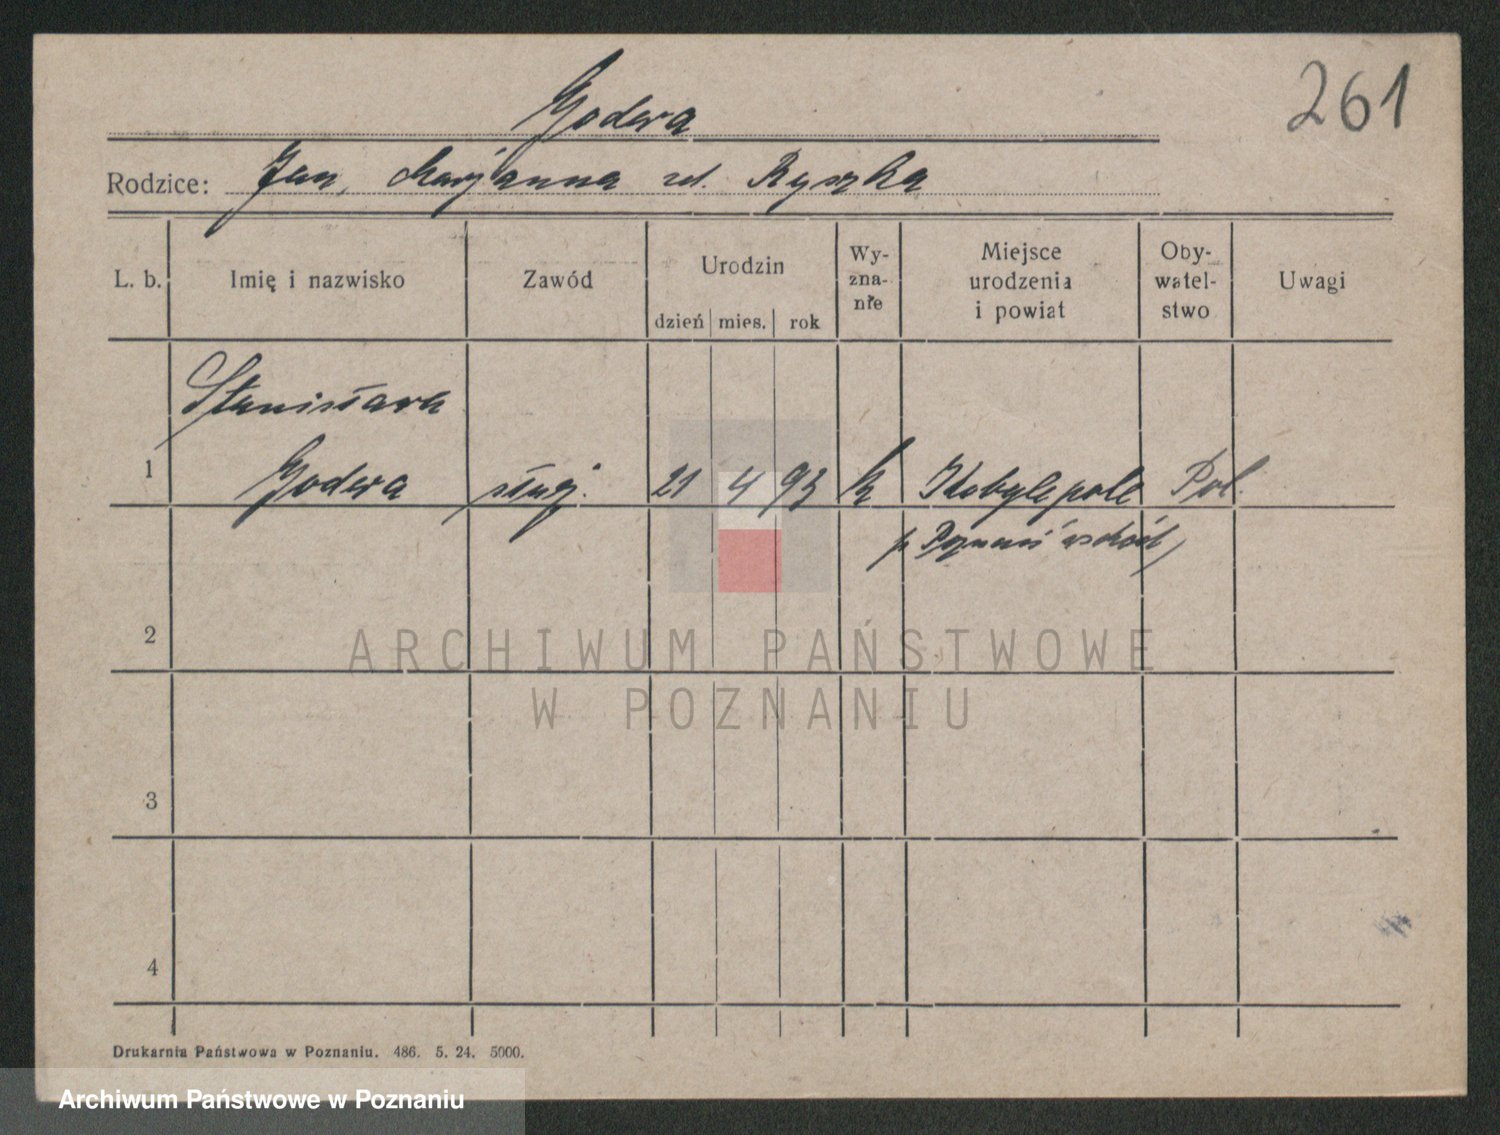 261
Godera
Rodzice: Jan, Marjanna zd. Ryszka
L. b. Imię i nazwisko Zawód Urodzin dzień mies. rok Wy-zna-nie Miejsce urodzenia i powiat Oby-watel-stwo Uwagi
Stanisława
1 Godera służ. 21 4 93 k Kobylepole Pol.
p Poznań wschód
2
ARCHIWUM PAŃSTWOWE
W POZNANIU
3
4
Drukarnia Państwowa w Poznaniu. 486. 5. 24. 5000.
Archiwum Państwowe w Poznaniu